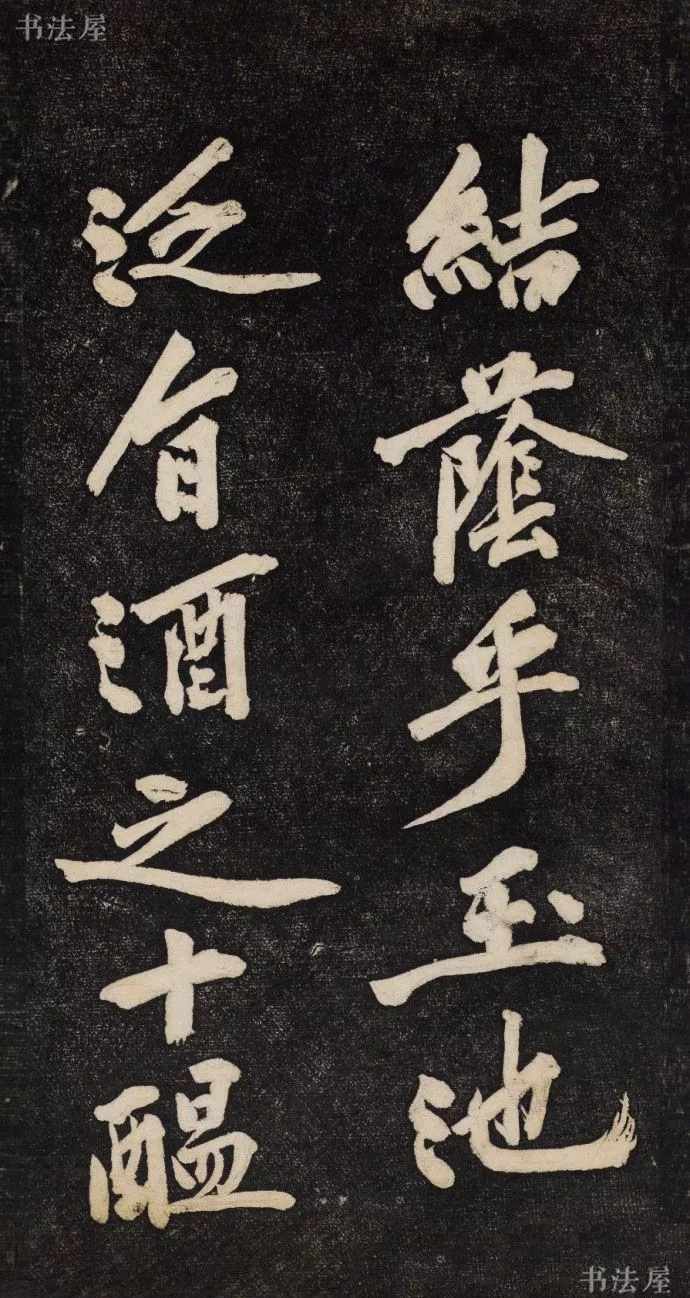 书法屋
結蔭乎玉池
泛旨酒之十醖
书法屋